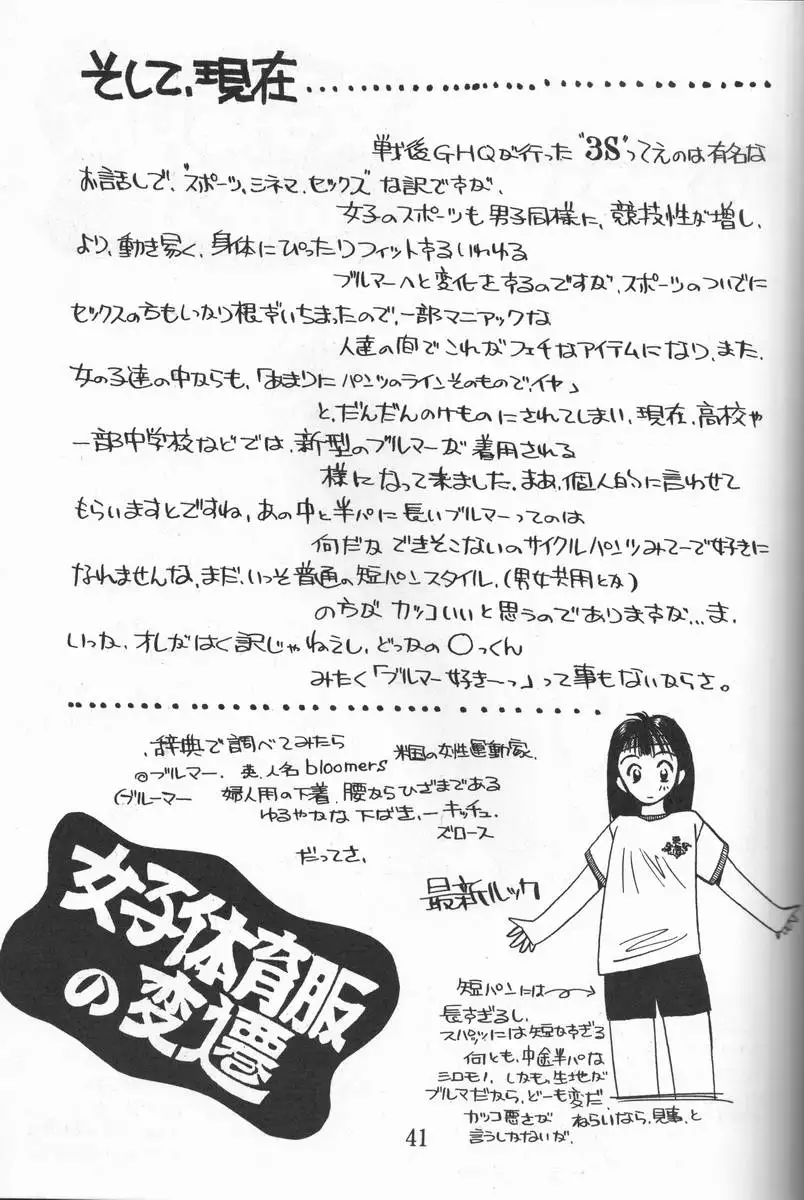 そして、現在............................
戦後GHQが行った"3S"ってえのは有名な
お話しで、"スポーツ、シネマ、セックス"な訳ですが、
女子のスポーツも男子同様に、競技性が増し、
より、動き易く、身体にぴったりフィットするいわゆる
ブルマーへと変化をするのですが、スポーツのついでに
セックスの方もしっかり根ずいちまったので、一部マニアックな
人達の間でこれがフェチなアイテムになり、また、
女の子達の中からも、「あまりにパンツのラインそのものでイヤ」
と、だんだんのけものにされてしまい、現在、高校や
一部中学校などでは、新型のブルマーが着用される
様になって来ました。まあ、個人的に言わせて
もらいますとですね、あの中と半パに長いブルマーってのは
何だかできそこないのサイクルパンツみてーで好きに
なれませんな、まだ、いっそ普通の短パンスタイル、(男女共用とか)
の方がカッコいいと思うのでありますが...ま、
いっか、オレがはく訳じゃねえし、どっかの〇っくん
みたく「ブルマー好き〜っ」って事もないからさ。
辞典で調べてみたら
◎ブルマー、英、人名bloomers 米国の女性運動家、
(ブルーマー 婦人用の下着、腰からひざまである
ゆるやかな下ばき、ーキッチュ、
ズロース
だってさ、
女子体育服
の変遷
最新ルック
短パンには
長すぎるし、
スパッツには短かすぎる
何とも、中途半パな
シロモノ、しかも、生地が
ブルマだから、どーも変だ、
カッコ悪さが ねらいなら、見事、と
言うしかないが、
41